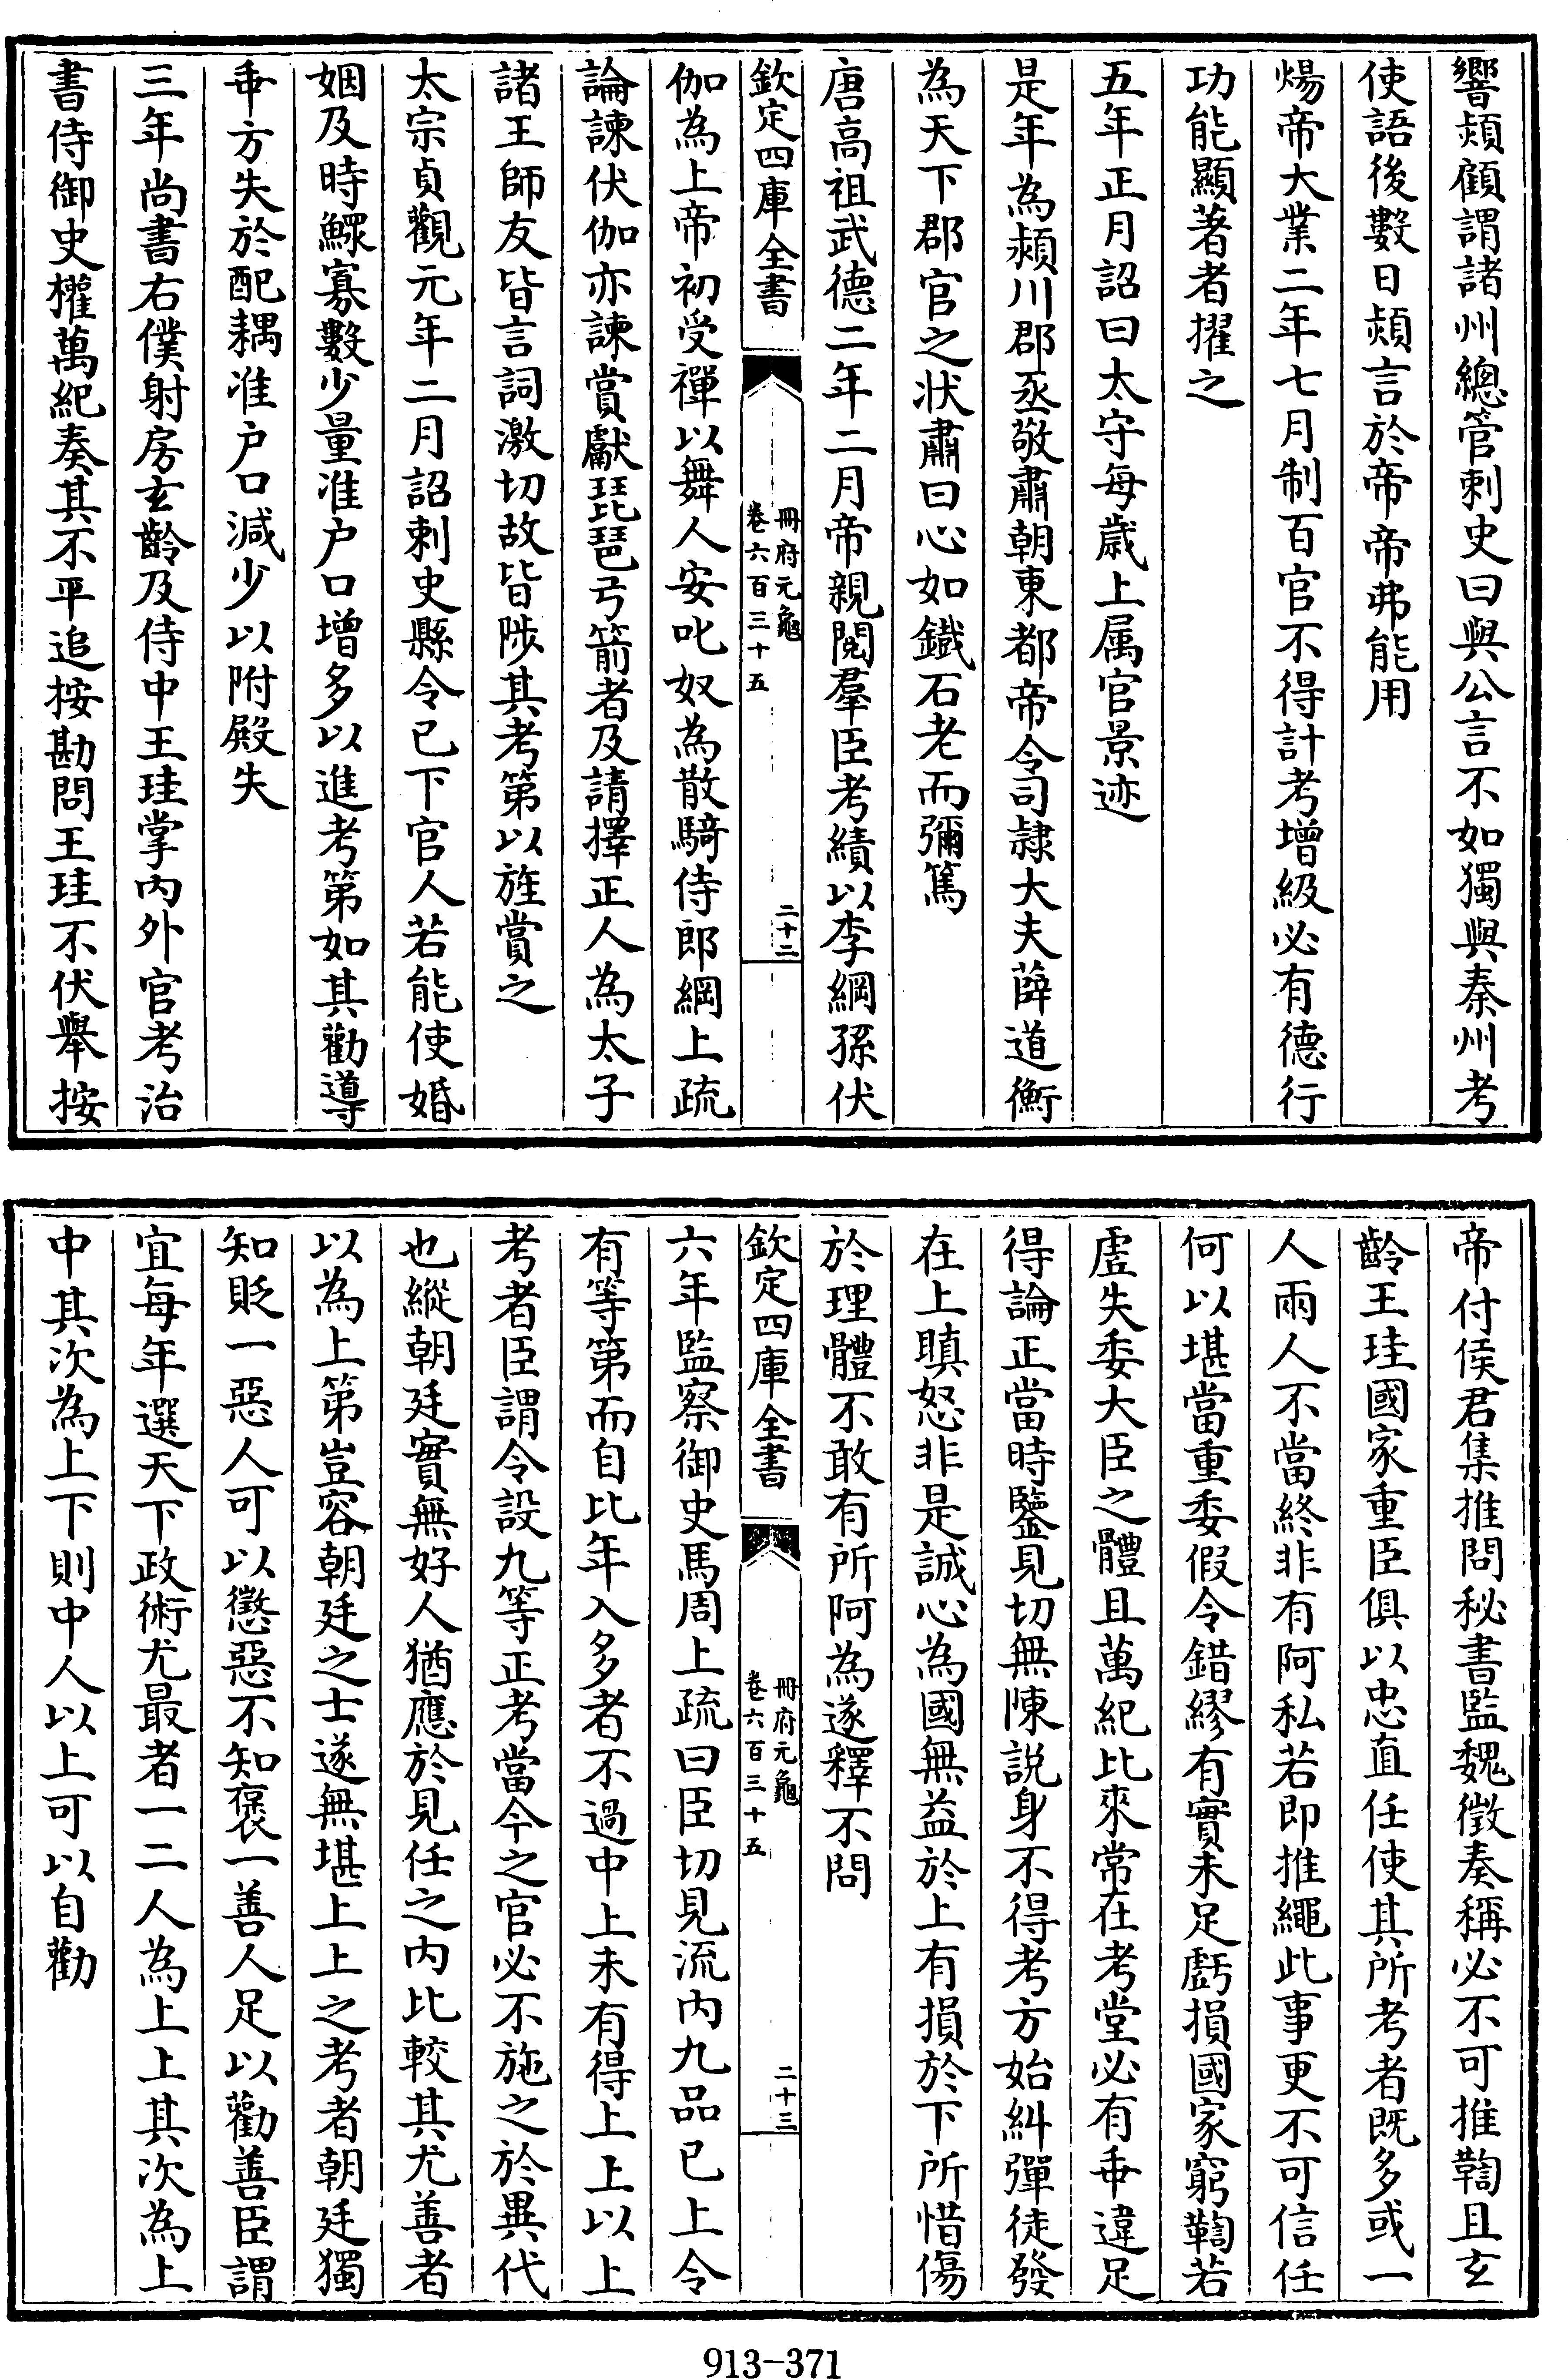 響熲顧謂諸州總管刺史曰與公言不如獨與秦州考
使語後數日熲言於帝帝弗能用
煬帝大業二年七月制百官不得計考增級必有德行
功能顯著者擢之
五年正月詔曰太守每歲上属官景迹
是年為潁川郡丞敬肅朝東都帝令司隸大夫薛道衡
為天下郡官之状肅曰心如鐵石老而彌篤
唐高祖武德二年二月帝親閲羣臣考績以李綱孫伏
欽定四庫全書
冊府元龜
卷六百三十五
二十二
伽為上帝初受禪以舞人安叱奴為散騎侍郎綱上疏
論諫伏伽亦諫賞獻琵琶弓箭者及請擇正人為太子
諸王師友皆言詞激切故皆陟其考第以旌賞之
太宗貞觀元年二月詔刺史縣令已下官人若能使婚
姻及時鰥寡數少量准户口增多以進考第如其勸導
乖方失於配耦准户口減少以附殿失
三年尚書右僕射房玄齡及侍中王珪掌内外官考治
書侍御史權萬紀奏其不平追按勘問王珪不伏舉按
帝付侯君集推問秘書監魏徵奏稱必不可推鞫且玄
齡王珪國家重臣俱以忠直任使其所考者既多或一
人兩人不當終非有阿私若即推繩此事更不可信任
何以堪當重委假令錯繆有實未足虧損國家窮鞫若
虛失委大臣之體且萬紀比來常在考堂必有乖違足
得論正當時鑒見切無陳説身不得考方始糾彈徒發
在上瞋怒非是誠心為國無益於上有損於下所惜傷
於理體不敢有所阿為遂釋不問
欽定四庫全書
冊府元龜
卷六百三十五
二十三
六年監察御史馬周上疏曰臣切見流内九品已上令
有等第而自比年入多者不過中上未有得上上以上
考者臣謂令設九等正考當今之官必不施之於異代
也縱朝廷實無好人猶應於見任之内比較其尤善者
以為上第豈容朝廷之士遂無堪上上之考者朝廷獨
知貶一惡人可以懲惡不知褒一善人足以勸善臣謂
宜每年選天下政術尤最者一二人為上上其次為上
中其次為上下則中人以上可以自勸
913-371